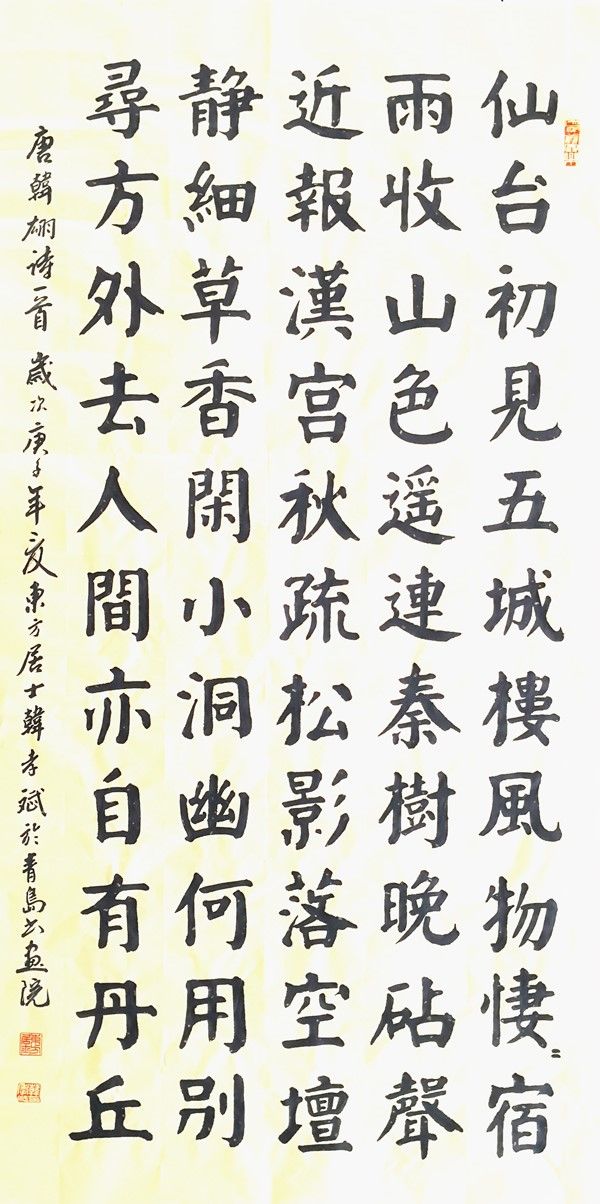 仙台初見五城樓風物悽〻宿
雨收山色遥連秦樹晚砧聲
近報漢宫秋疏松影落空壇
静細草香閑小洞幽何用别
尋方外去人間亦自有丹丘
唐韓翃诗一首 歲次庚子年夏東方居士韓孝斌於青島书画院